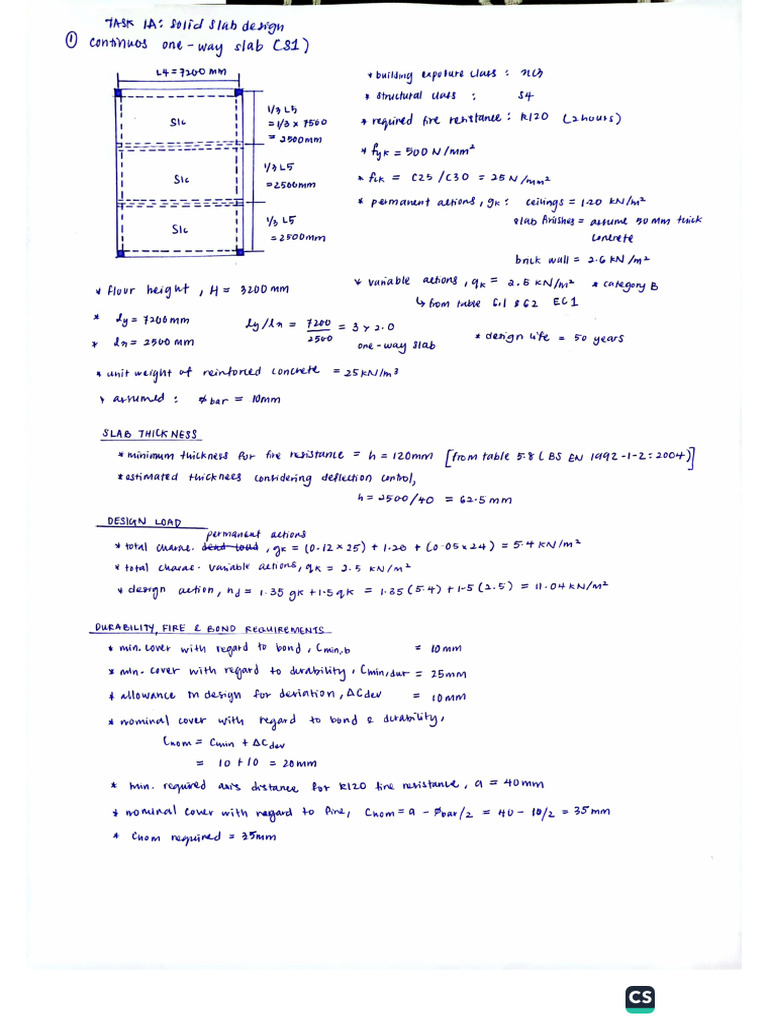 TASK 1A: solid slab design
① continuos one-way slab (S1)
L4 = 7200 mm
S1c
1/3 L5
= 1/3 x 7500
= 2500mm
S1c
1/3 L5
= 2500mm
S1c
1/3 L5
= 2500mm
* building exposure class : XC3
* structural class : S4
* required fire resistance : R120 (2 hours)
* fyk = 500 N/mm²
* fck = C25/C30 = 25 N/mm²
* permanent actions, gk : ceilings = 1.20 kN/m²
slab finishes = assume 50 mm thick
concrete
brick wall = 2.6 kN/m²
* variable actions, qk = 2.5 kN/m² * category B
↳ from table 6.1 & 6.2 EC1
* floor height, H = 3200 mm
* ly = 7200 mm
* lx = 2500 mm
ly/lx = 7200/2500 = 3 > 2.0
one-way slab
* design life = 50 years
* unit weight of reinforced concrete = 25 kN/m³
* assumed : øbar = 10mm
SLAB THICKNESS
* minimum thickness for fire resistance = h = 120mm [from table 5.8 (BS EN 1992-1-2:2004)]
* estimated thickness considering deflection control,
h = 2500/40 = 62.5 mm
DESIGN LOAD
permanent actions
* total charac. dead load, gk = (0.12 x 25) + 1.20 + (0.05 x 24) = 5.4 kN/m²
* total charac. variable actions, qk = 2.5 kN/m²
* design action, nd = 1.35 gk + 1.5 qk = 1.35 (5.4) + 1.5 (2.5) = 11.04 kN/m²
DURABILITY, FIRE & BOND REQUIREMENTS
* min. cover with regard to bond, Cmin,b = 10mm
* min. cover with regard to durability, Cmin,dur = 25mm
* allowance in design for deviation, ΔCdev = 10mm
* nominal cover with regard to bond & durability,
Cnom = Cmin + ΔCdev
= 10 + 10 = 20mm
* min. required axis distance for R120 fire resistance, a = 40mm
* nominal cover with regard to fire, Cnom = a - øbar/2 = 40 - 10/2 = 35 mm
* Cnom required = 35mm
CS